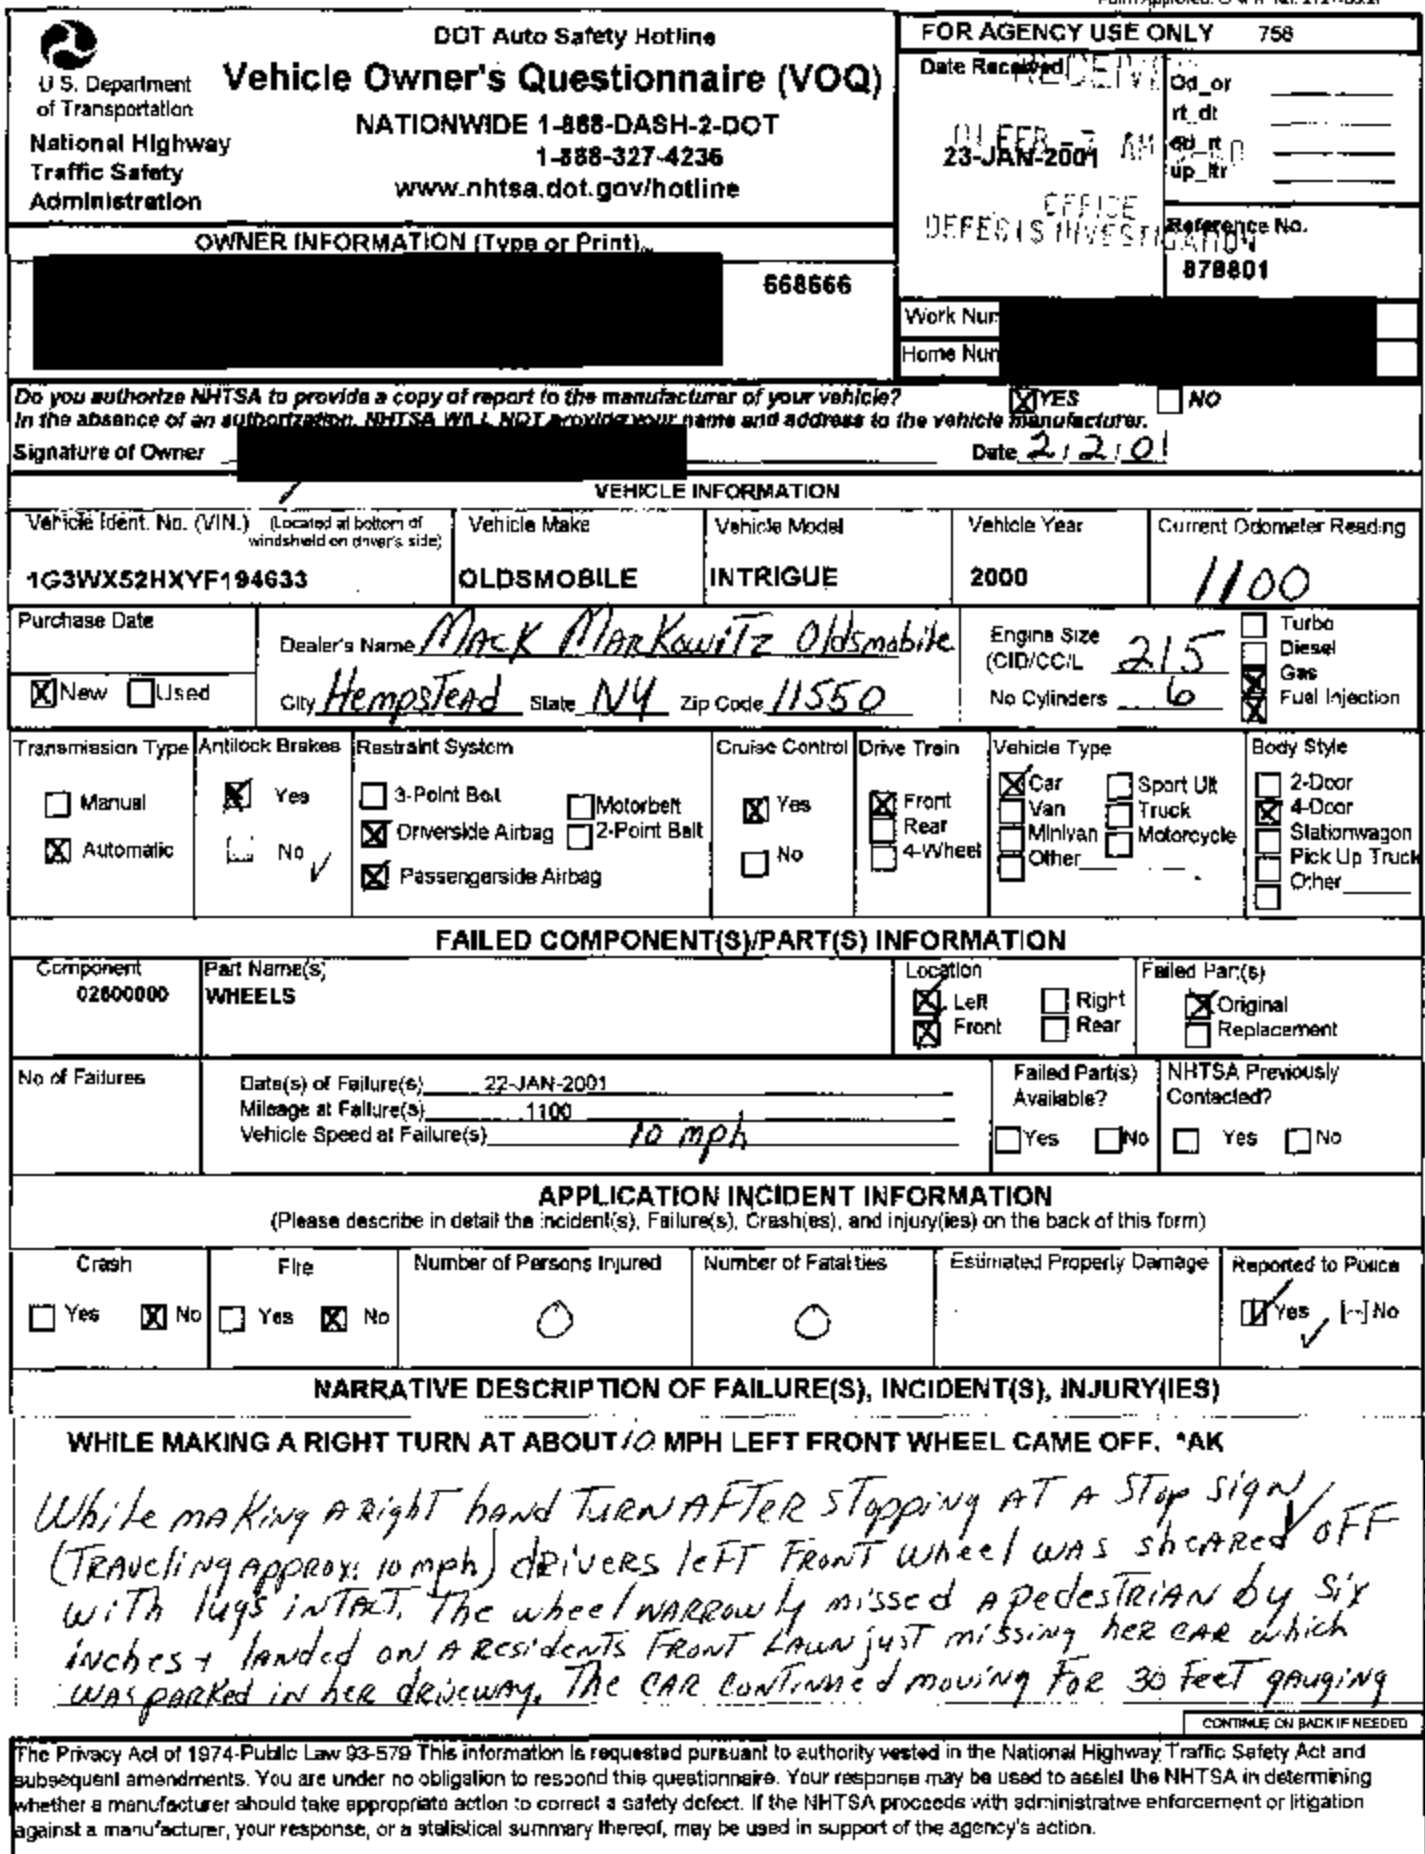 DOT Auto Safety Hotline
Vehicle Owner's Questionnaire (VOQ)
NATIONWIDE 1-888-DASH-2-DOT
1-888-327-4236
www.nhtsa.dot.gov/hotline
U S. Department
of Transportation
National Highway
Traffic Safety
Administration
FOR AGENCY USE ONLY 758
Date Received
23-JAN-2001
OFFICE
DEFECTS INVESTIGATION
Od_or
rt_dt
od_rt
up_ltr
Reference No.
878801
OWNER INFORMATION (Type or Print)
668666
Work Num
Home Num
Do you authorize NHTSA to provide a copy of report to the manufacturer of your vehicle? YES NO
In the absence of an authorization, NHTSA WILL NOT provide your name and address to the vehicle manufacturer.
Signature of Owner Date 2/2/01
VEHICLE INFORMATION
Vehicle Ident. No. (VIN.) (Located at bottom of windshield on driver's side)
1G3WX52HXYF194633
Vehicle Make
OLDSMOBILE
Vehicle Model
INTRIGUE
Vehicle Year
2000
Current Odometer Reading
1100
Purchase Date
New Used
Dealer's Name Mack Markowitz Oldsmobile
City Hempstead State NY Zip Code 11550
Engine Size
(CID/CC/L 215
No Cylinders 6
Turbo
Diesel
Gas
Fuel Injection
Transmission Type
Manual
Automatic
Antilock Brakes
Yes
No
Restraint System
3-Point Belt
Driverside Airbag
Passengerside Airbag
Motorbelt
2-Point Belt
Cruise Control
Yes
No
Drive Train
Front
Rear
4-Wheel
Vehicle Type
Car
Van
Minivan
Other
Sport Ult
Truck
Motorcycle
Body Style
2-Door
4-Door
Stationwagon
Pick Up Truck
Other
FAILED COMPONENT(S)/PART(S) INFORMATION
Component
02600000
Part Name(s)
WHEELS
Location
Left Right
Front Rear
Failed Part(s)
Original
Replacement
No of Failures
Date(s) of Failure(s) 22-JAN-2001
Mileage at Failure(s) 1100
Vehicle Speed at Failure(s) 10 mph
Failed Part(s)
Available?
Yes No
NHTSA Previously
Contacted?
Yes No
APPLICATION INCIDENT INFORMATION
(Please describe in detail the incident(s), Failure(s), Crash(es), and injury(ies) on the back of this form)
Crash
Yes No
Fire
Yes No
Number of Persons Injured
0
Number of Fatalities
0
Estimated Property Damage
Reported to Police
Yes No
NARRATIVE DESCRIPTION OF FAILURE(S), INCIDENT(S), INJURY(IES)
WHILE MAKING A RIGHT TURN AT ABOUT 10 MPH LEFT FRONT WHEEL CAME OFF. *AK
While making a right hand turn after stopping at a stop sign
(Traveling approx. 10 mph) drivers left front wheel was sheared off
with lugs intact. The wheel narrowly missed a pedestrian by six
inches + landed on a residents front lawn just missing her car which
was parked in her driveway. The car continued moving for 30 feet gauging
CONTINUE ON BACK IF NEEDED
The Privacy Act of 1974-Public Law 93-579 This information is requested pursuant to authority vested in the National Highway Traffic Safety Act and
subsequent amendments. You are under no obligation to respond this questionnaire. Your response may be used to assist the NHTSA in determining
whether a manufacturer should take appropriate action to correct a safety defect. If the NHTSA proceeds with administrative enforcement or litigation
against a manufacturer, your response, or a statistical summary thereof, may be used in support of the agency's action.